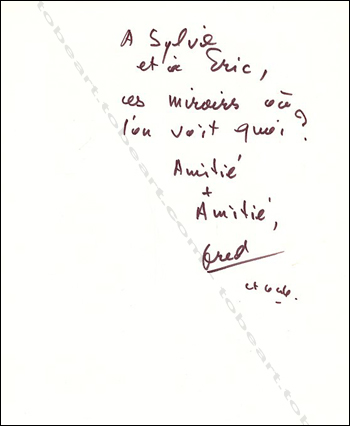 A Sylvie
et à Eric,
ces miroirs où
l'on voit quoi ?
Amitié
+
Amitié,
Fred
et
tobeart.com - tobeart.com - tobeart.com